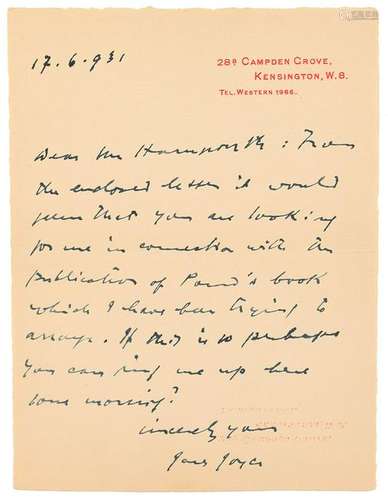 28B CAMPDEN GROVE,
KENSINGTON, W.8.
TEL. WESTERN 1966.
17.6.931
Dear Mr Harmsworth: From
the enclosed letter it would
seem that you are looking
for me in connection with the
publication of Pound's book
which I have been trying to
arrange. If this is so perhaps
you can ring me up here
some morning?
sincerely yours
James Joyce